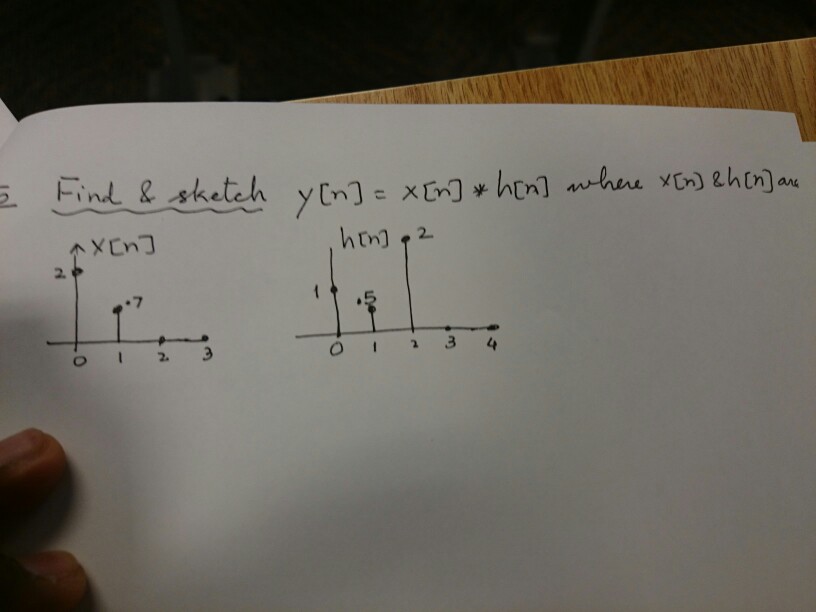 5 Find & sketch y[n] = x[n] * h[n] where x[n] & h[n] are
x[n] h[n] 2
2
1 .5
.7
0 1 2 3 0 1 2 3 4